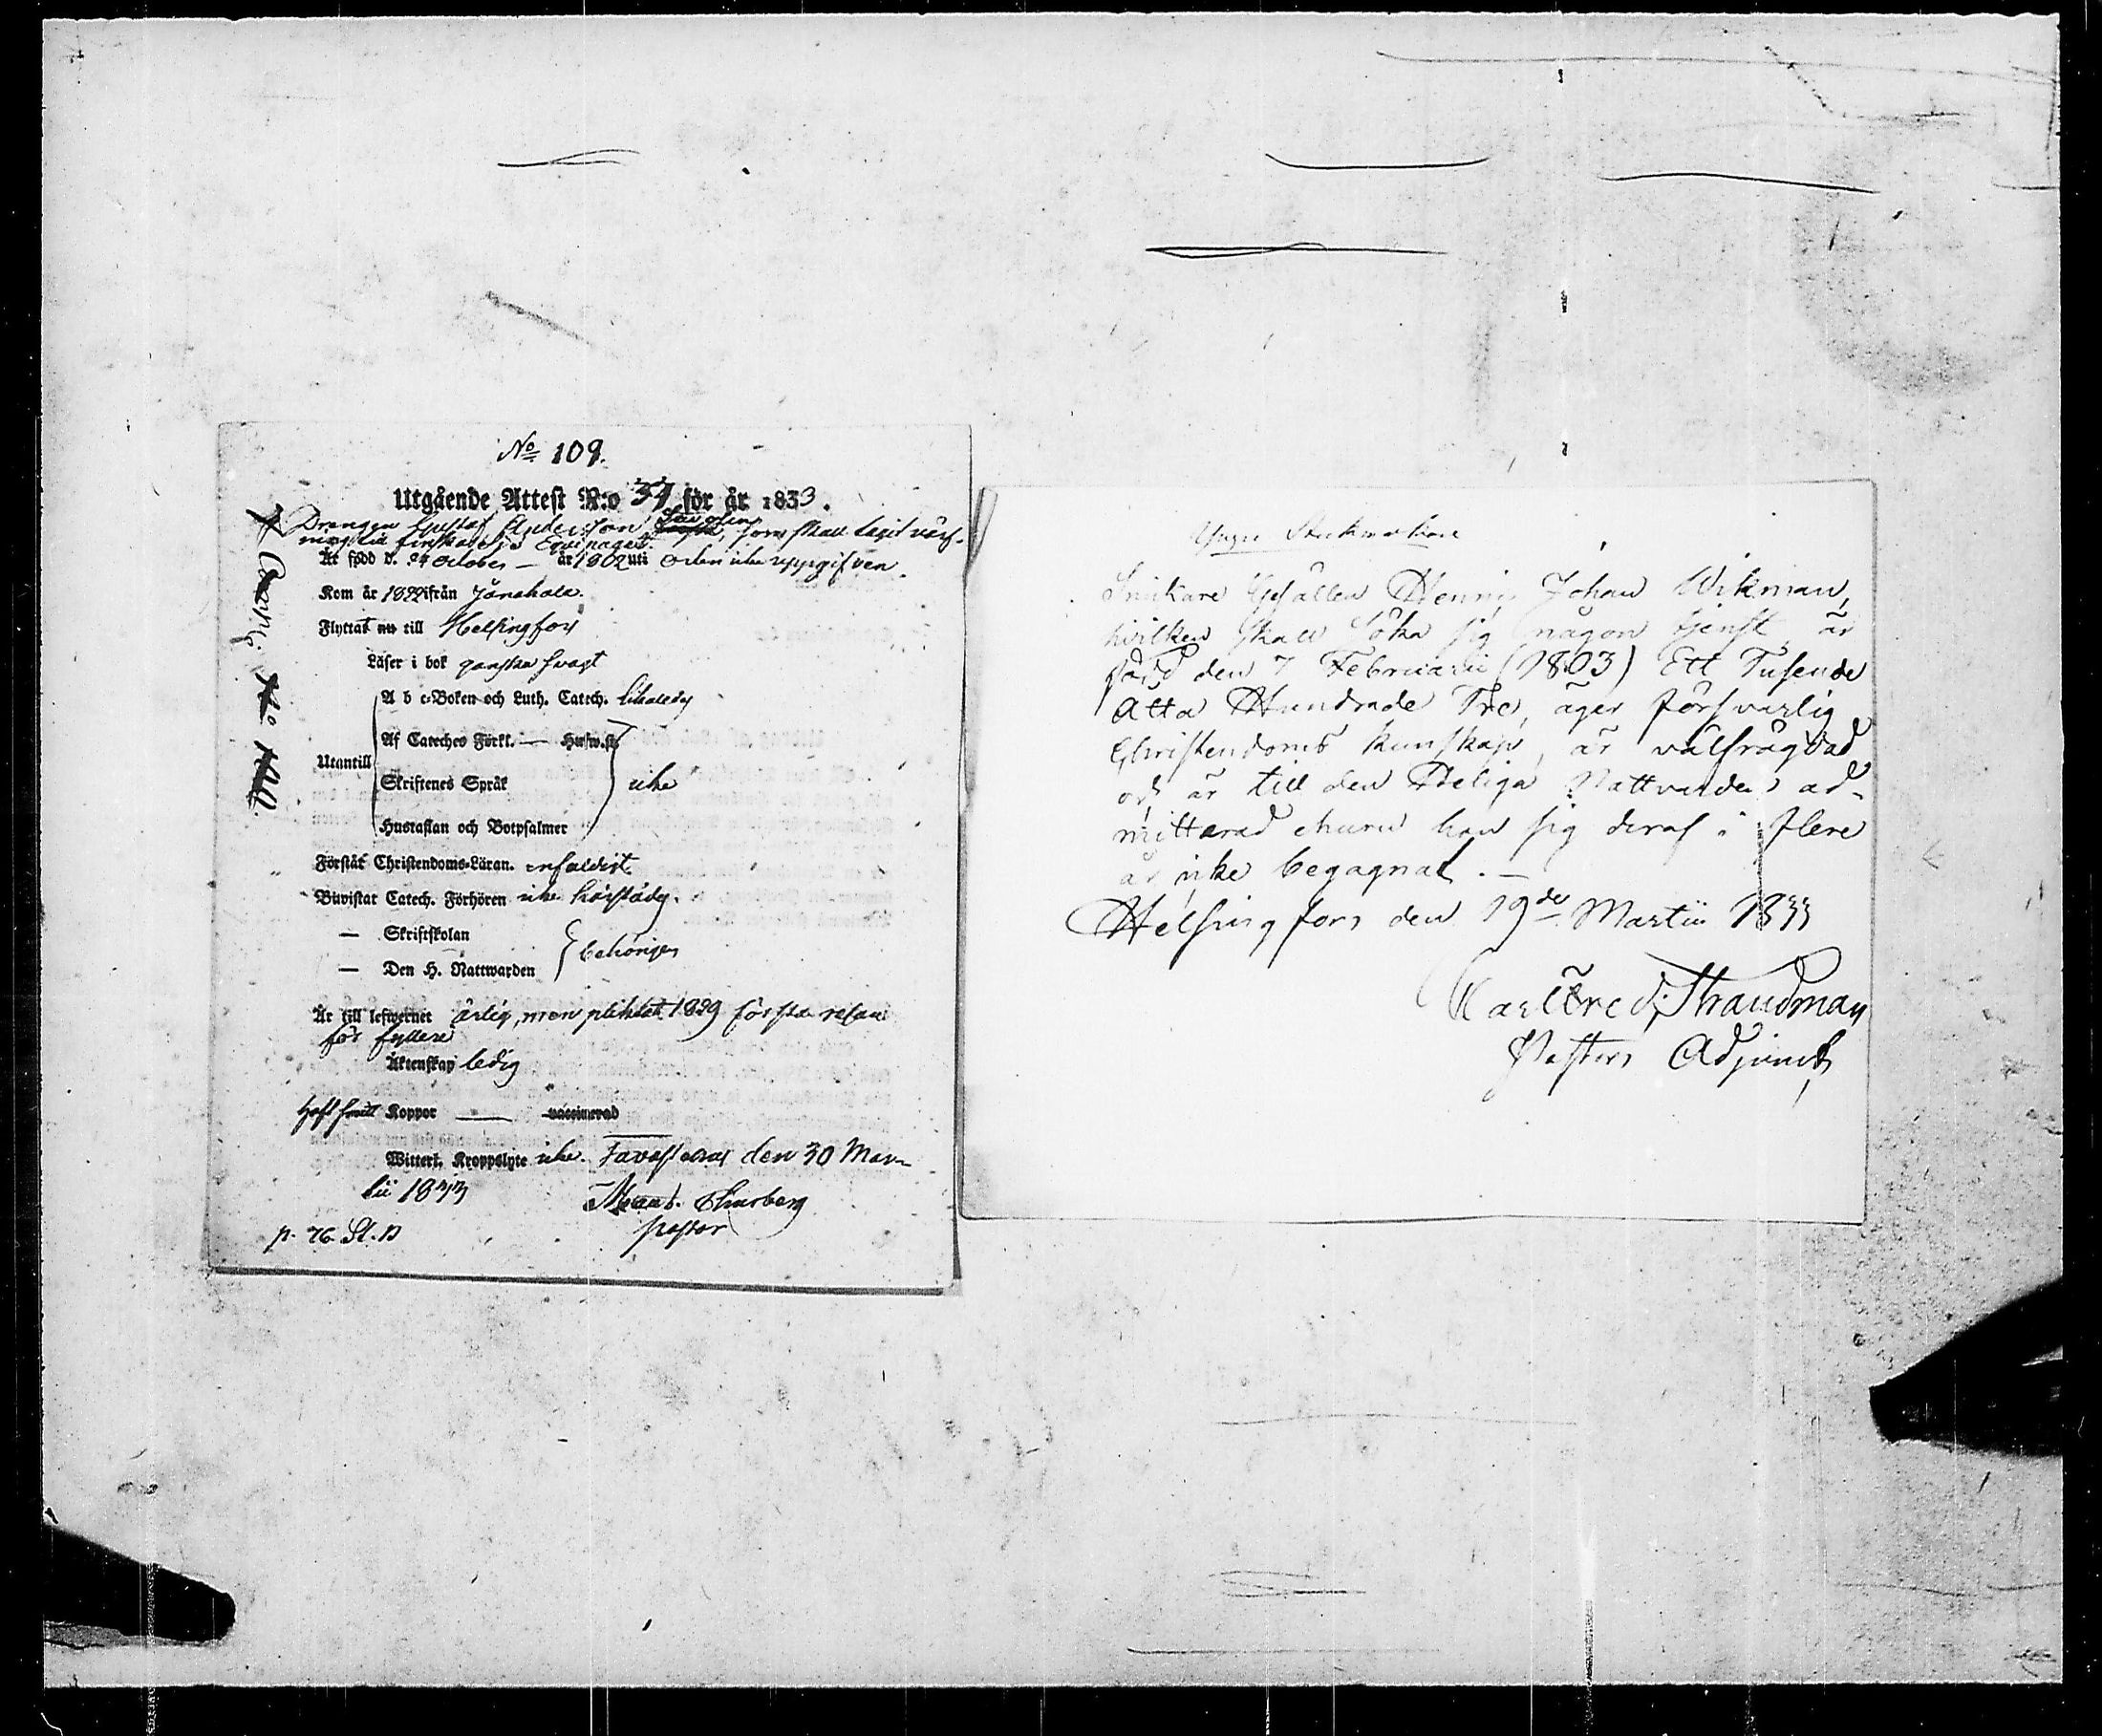 No 109.
Utgående Attest N:o 34 för år 1833.
Drengen Gustaf Andersson som skall tagit värf-
ning till finska Equipaget.
Är född d. 24 October — år 1802 uti orten icke uppgifven.
Kom år 1822 ifrån Jånakala.
Flyttat nu till Helsingfors
Läser i bok ganska svagt
A b c-Boken och Luth. Catech.
Af Cateches Förkl. — Husw.st.
Utantill
Skriftenes Språk
icke
Hustaflan och Botpsalmer
Förstår Christendoms-Läran. enfaldigt.
Biwistat Catech. Förhören icke
— Skriftskolan
behörigen
— Den H. Nattwarden
Är till lefwernet ärlig, men pliktat 1829 första resan
för fylleri
Äktenskap ledig
Haft Koppor — vaccinerad
Witterl. Kroppslyte icke. Tavastehus den 30 Mar-
tii 1833
Pastor
p. 76. St. D
Yngre
Snickare Gesällen Henric Johan Wikman,
hvilken skall söka sig någon tjenst, är
född den 7 Februarii (1803) Ett Tusende
Åtta Hundrade Tre, äger försvarlig
Christendoms kunskap, är välfrägdad
och är till den Heliga Nattvarden ad-
mitterad ehuru han sig deraf i flere
år icke begagnat. —
Helsingfors den 19de Martii 1833
Strandman
Pastors Adjunct